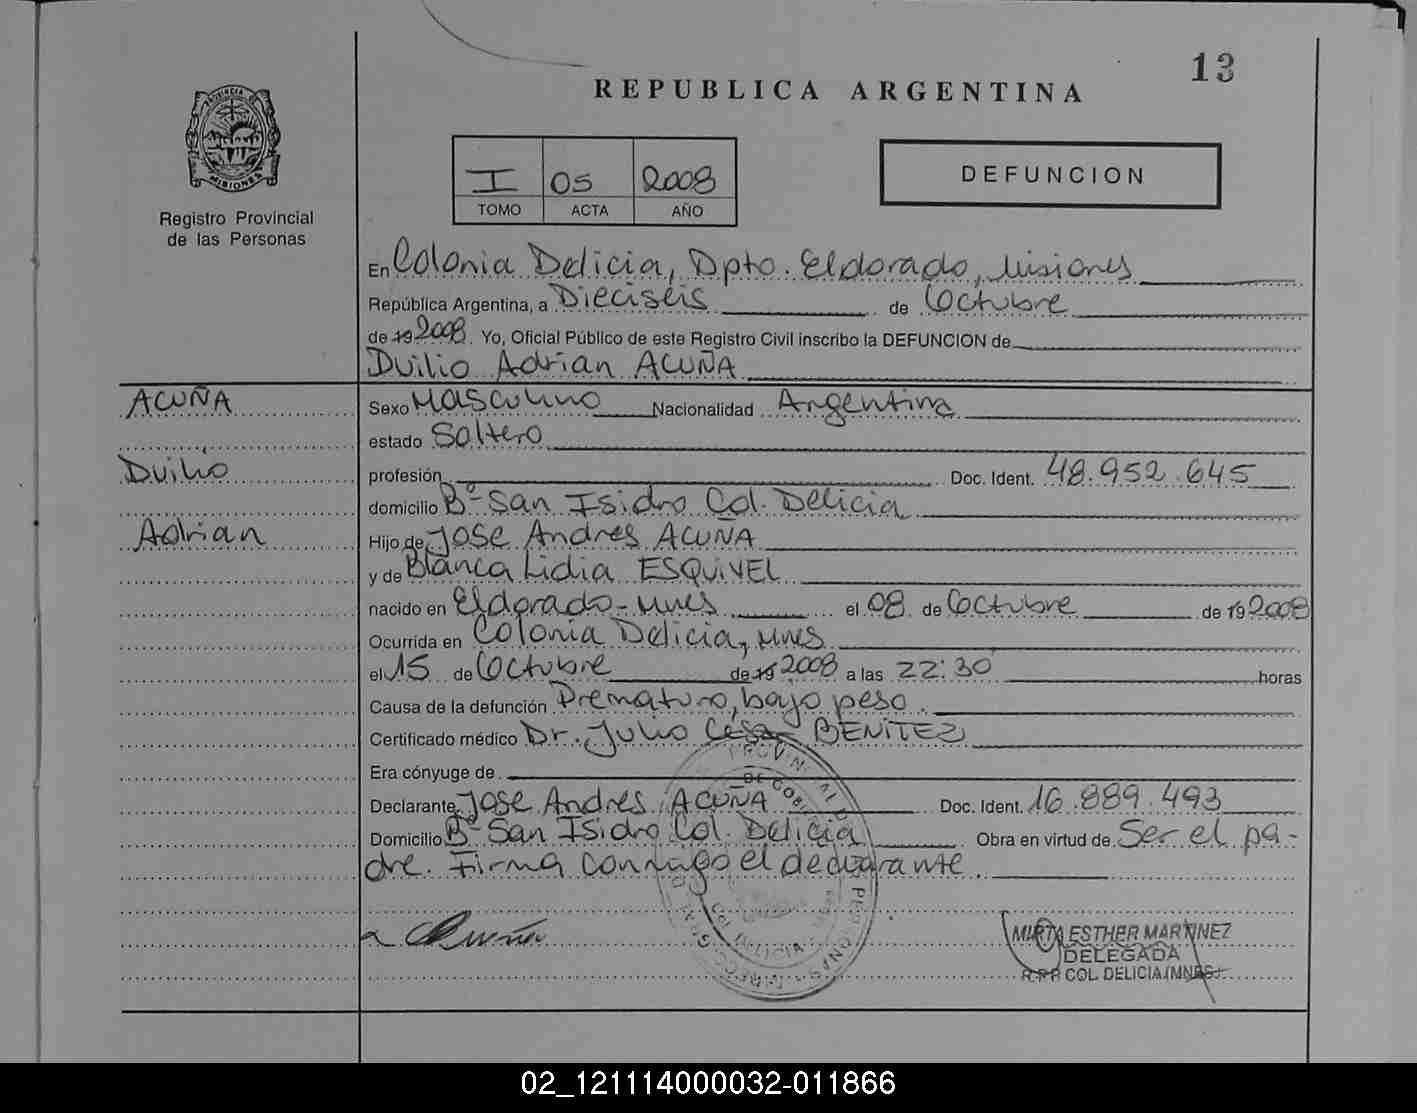 13
REPUBLICA ARGENTINA
PROVINCIA DE
MISIONES
Registro Provincial
de las Personas
I 05 2008
TOMO ACTA AÑO
DEFUNCION
En Colonia Delicia, Dpto. Eldorado, Misiones
República Argentina, a Dieciseis de Octubre
de 19 2008. Yo, Oficial Público de este Registro Civil inscribo la DEFUNCION de
Duilio Adrian ACUÑA
ACUÑA
Duilio
Adrian
Sexo Masculino Nacionalidad Argentina
estado Soltero
profesión Doc. Ident. 48.952.645
domicilio Bº San Isidro Col. Delicia
Hijo de Jose Andres ACUÑA
y de Blanca Lidia ESQUIVEL
nacido en Eldorado-Mnes el 08 de Octubre de 19 2008
Ocurrida en Colonia Delicia, Mnes
el 15 de Octubre de 19 2008 a las 22:30 horas
Causa de la defunción Prematuro, bajo peso.
Certificado médico Dr. Julio César BENITEZ
Era cónyuge de
Declarante Jose Andres ACUÑA Doc. Ident. 16.889.493
Domicilio Bº San Isidro Col. Delicia Obra en virtud de Ser el pa-
dre. Firma conmigo el declarante.
Acuña
MIRTA ESTHER MARTINEZ
DELEGADA
R.P.P. COL. DELICIA (MNES)
02_121114000032-011866